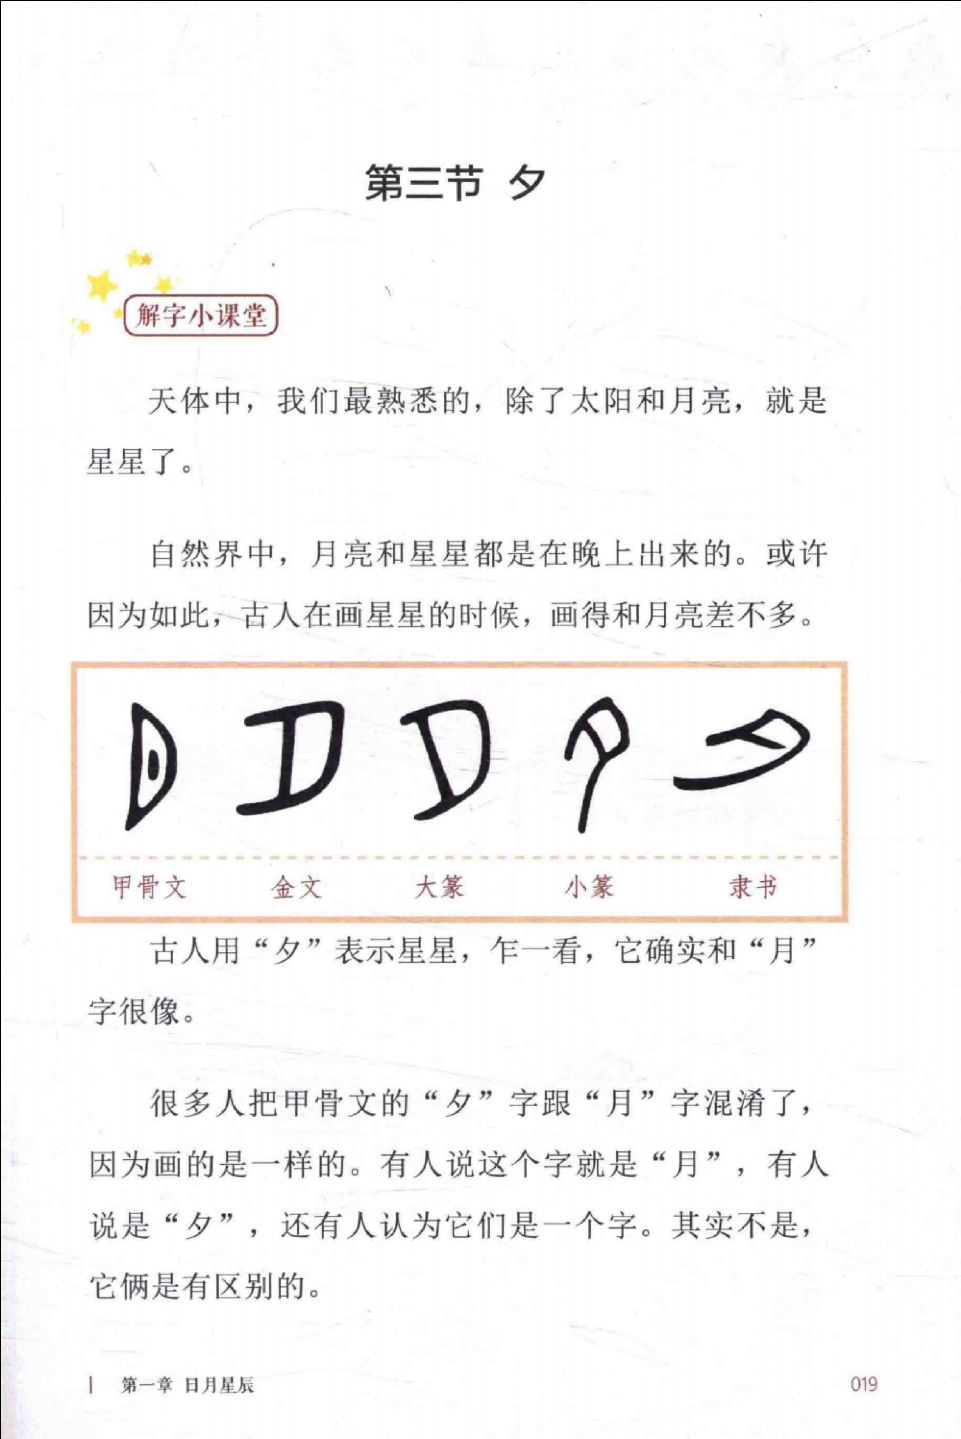 第三节 夕
解字小课堂
天体中，我们最熟悉的，除了太阳和月亮，就是
星星了。
自然界中，月亮和星星都是在晚上出来的。或许
因为如此，古人在画星星的时候，画得和月亮差不多。
甲骨文 金文 大篆 小篆 隶书
古人用“夕”表示星星，乍一看，它确实和“月”
字很像。
很多人把甲骨文的“夕”字跟“月”字混淆了，
因为画的是一样的。有人说这个字就是“月”，有人
说是“夕”，还有人认为它们是一个字。其实不是，
它俩是有区别的。
第一章 日月星辰 019